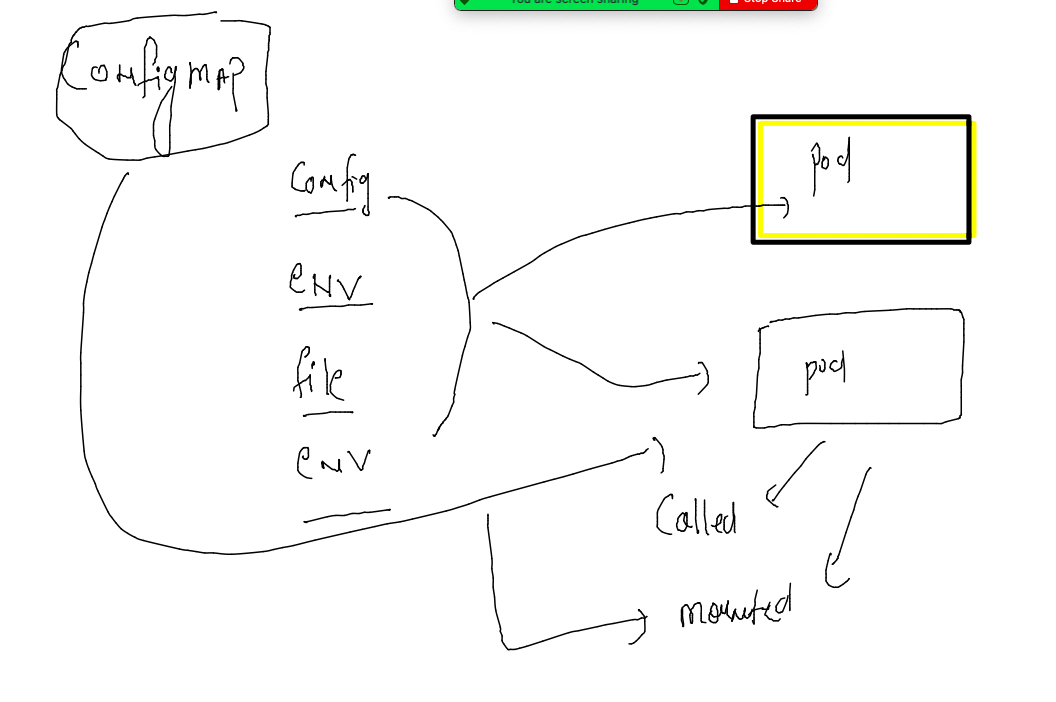 You are screen sharing
Stop Share
ConfigMAP
Config
ENV
file
ENV
pod
pod
Called
mounted